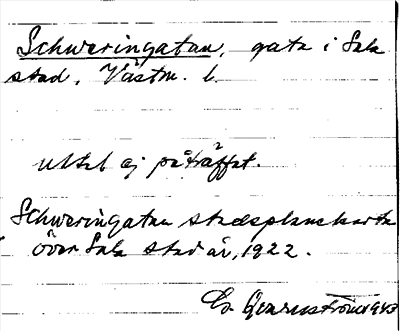 Schweringatan, gata i Sala
stad, Västm. l.
uttal ej påträffat.
Schweringatan stadsplanekarta
över Sala stad år, 1922.
1943